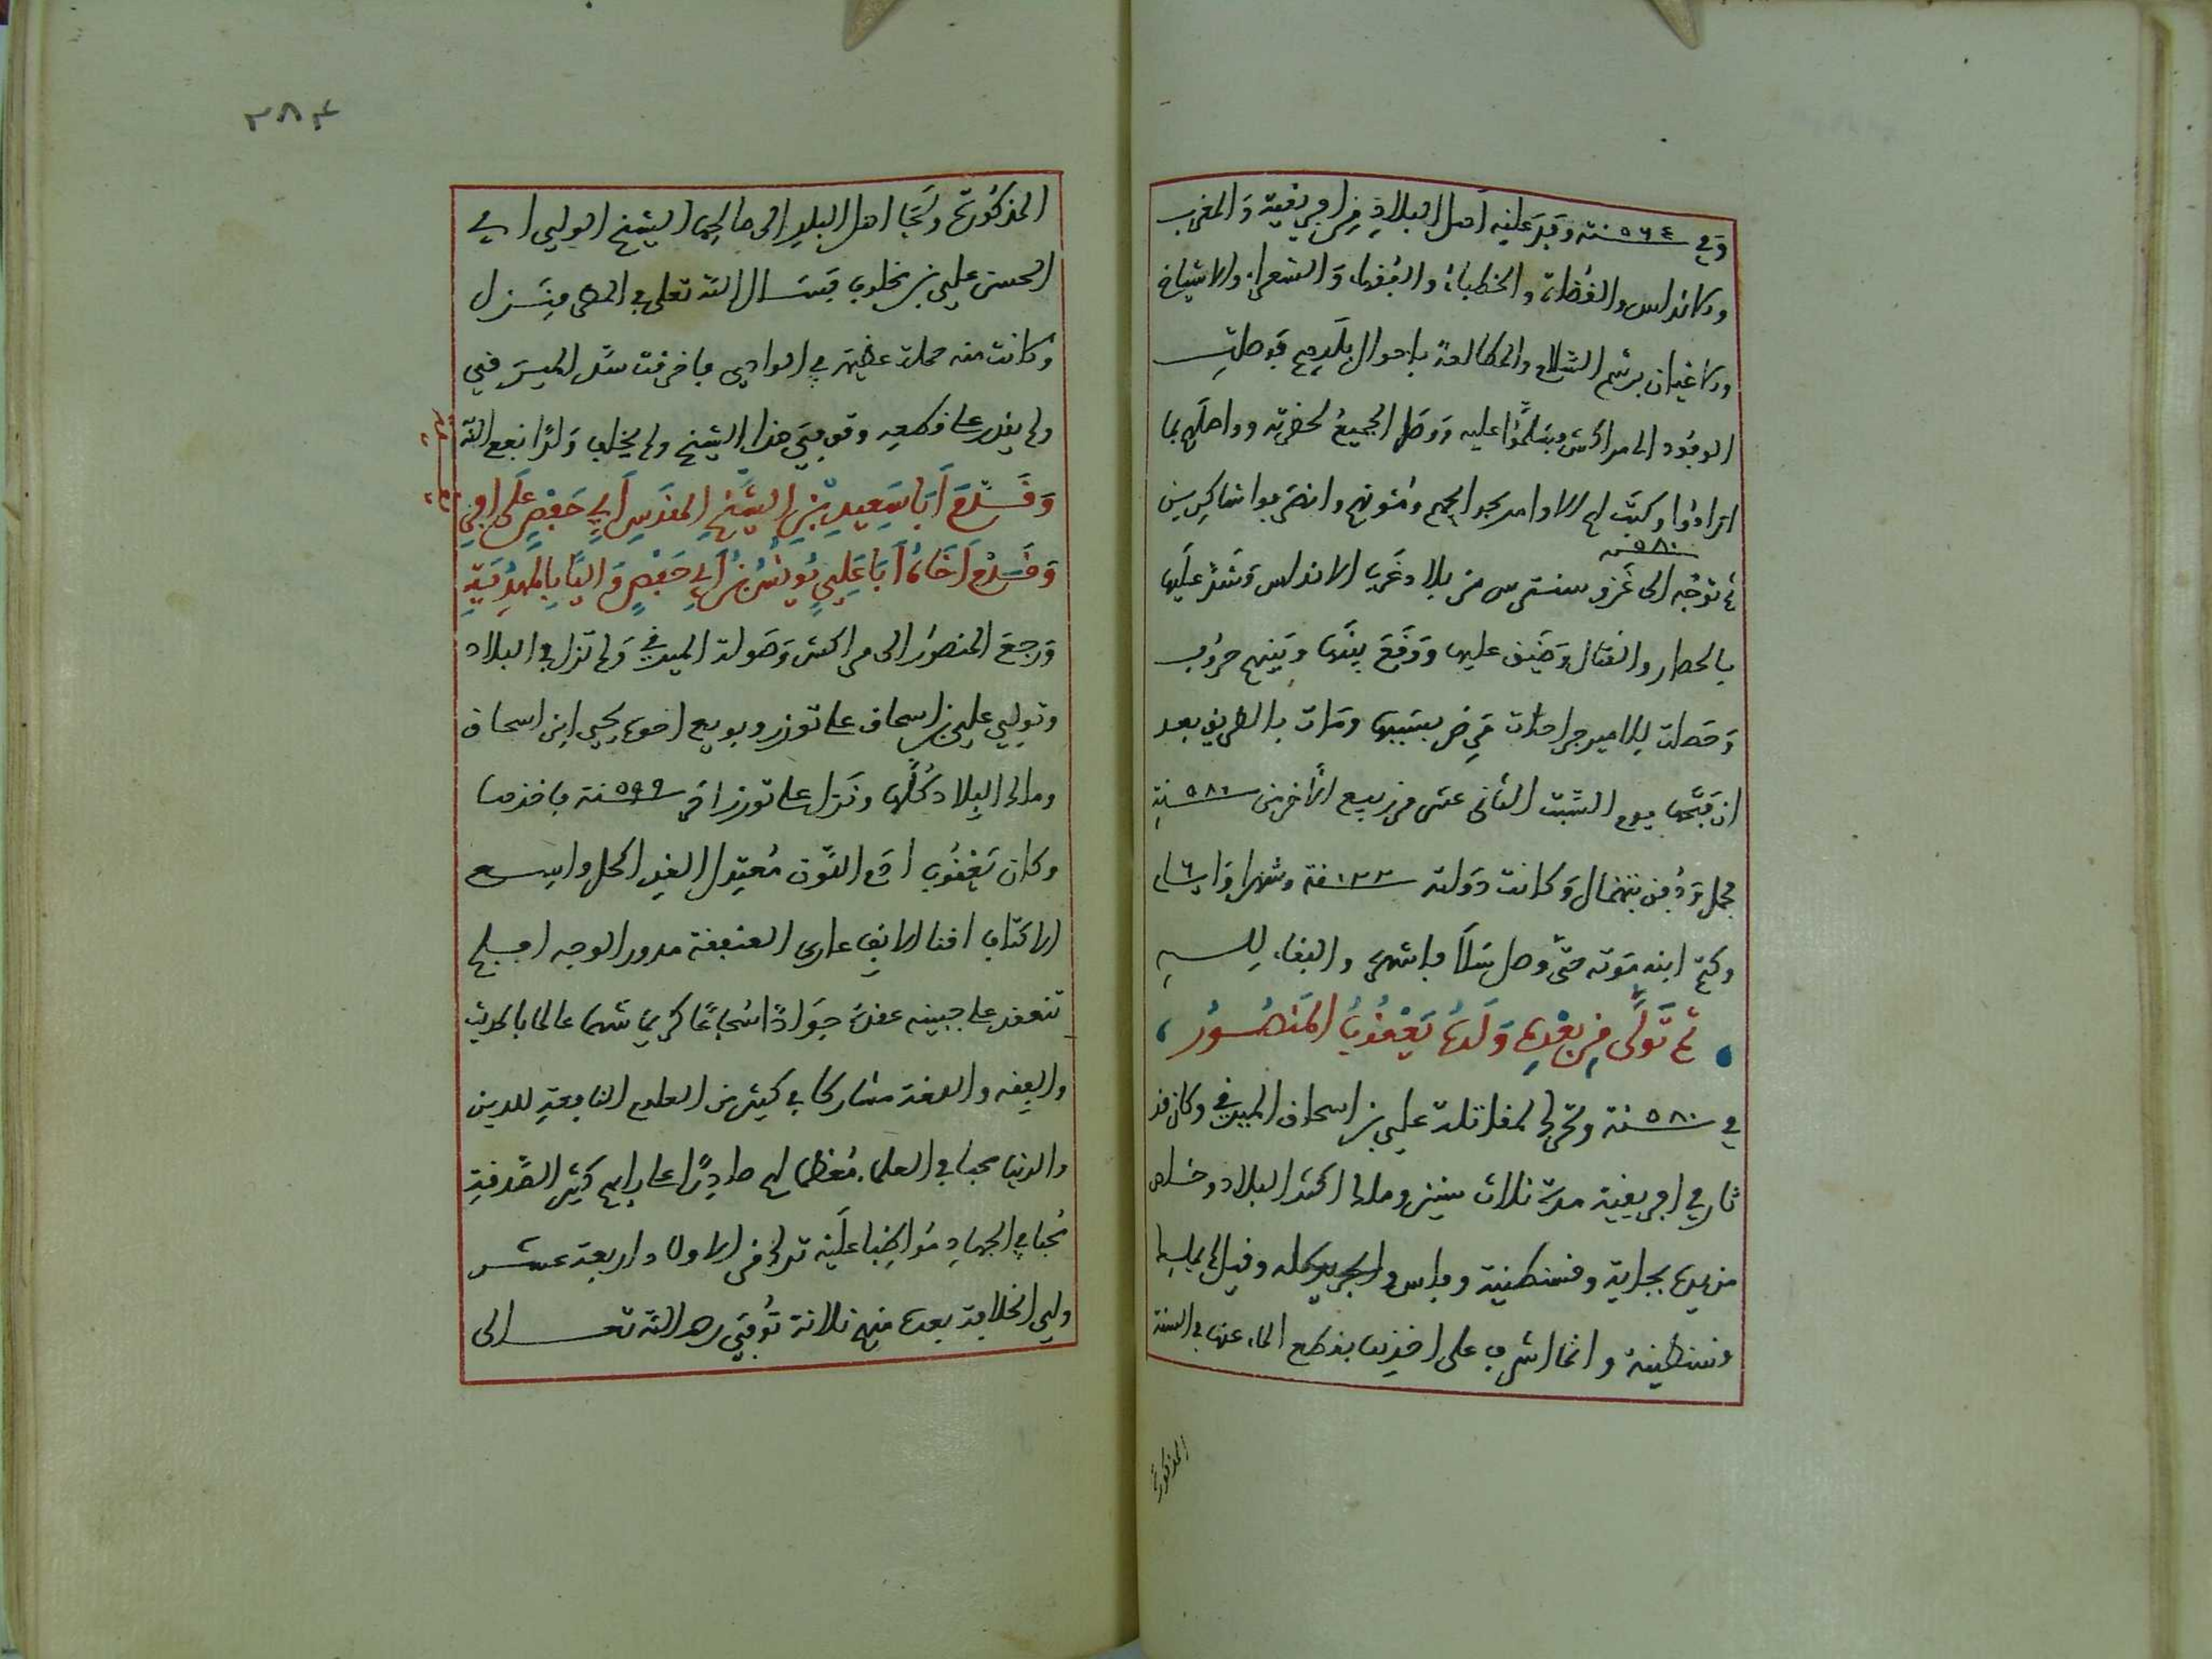 وفي سنة ٥٦٤ وفد عليه أهل البلاد من إفريقية والمغرب
والأندلس والقضاة والخطباء والفقهاء والشعراء والأشياخ
والأعيان برسم السلام والمطالعة بأحوال بلدهم فوصلت
الوفود إلى مراكش وسلموا عليه ووصل الجميع لحضرته وواصلهم بما
أرادوا وكتب لهم الأوامر بحوائجهم ومئونهم وانصرفوا شاكرين
سنة ٥٨٠
ثم توجه إلى غزو سنترين من بلاد غرب الأندلس وشد عليها
بالحصار والقتال وضيق عليها ووقع بينها وبينهم حروب
وحصلت للأمير جراحات مرض بسببها ومات بالطريق بعد
ان فتحها يوم السبت الثاني عشر من ربيع الآخر من سنة ٥٨٠
فحمل ودفن بتنمال وكانت دولته سنة ٢٢ وشهرا و٦ أيام
وكتم ابنه موته حتى وصل سلا فاشهر والبقاء لله
ثم تولى من بعده ولده يعقوب المنصور
في سنة ٥٨٠ وتحرك لمقاتلة علي بن إسحاق الميورقي وكان قد
ثار في إفريقية مدة ثلاث سنين وملك أكثر البلاد وخلص
من يده بجاية وقسنطينة وفاس والجريد كله وقيل لم يملك
قسنطينة وانما اشرف على اخذها بقطع الماء عنها في السنة
المذكورة
٣٨٤
المذكورة ولجأ أهل البلد إلى صالحها الشيخ الولي أبي
الحسن علي بن مخلوف فسأل الله تعالى في المطر فنزل
وكانت منه حملة عظيمة في الوادي فاخرقت سد الميورقي
ولم يقدر على قطعه وتوفي هذا الشيخ ولم يخلف ولدا نفع الله به
وقدم أبا سعيد بن الشيخ المقدس أبي حفص على افريقية
وقدم أخاه أبا علي يونس بن أبي حفص واليا بالمهدية
ورجع المنصور إلى مراكش وصولة الميورقي ولم تزل في البلاد
وتوفي علي بن إسحاق على توزر وبويع أخوه يحيى ابن إسحاق
وملك البلاد كلها ونزل على توزر في سنة ٥٩٩ فاخذها
وكان يعقوب ادم اللون معتدل القد اكحل واسع
الاكتاف اقنا الانف عاري العنفقة مدور الوجه افلج
تنعقد على جبينه عقدة جوادا شجاعا كريما شهما عالما بالحديث
والفقه واللغة مشاركا في كثير من العلوم النافعة للدين
والدنيا محبا في العلماء معظما لهم صادرا على رأيهم كثير الصدقة
محبا في الجهاد مواظبا عليه ترك من الأولاد أربعة عشر
ولي الخلافة بعده منهم ثلاثة توفي رحمه الله تعالى